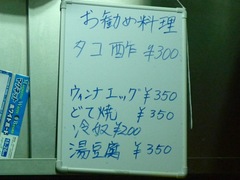 お勧め料理
タコ酢 ¥300
ウィンナエッグ ¥350
どて焼 ¥350
冷奴 ¥200
湯豆腐 ¥350